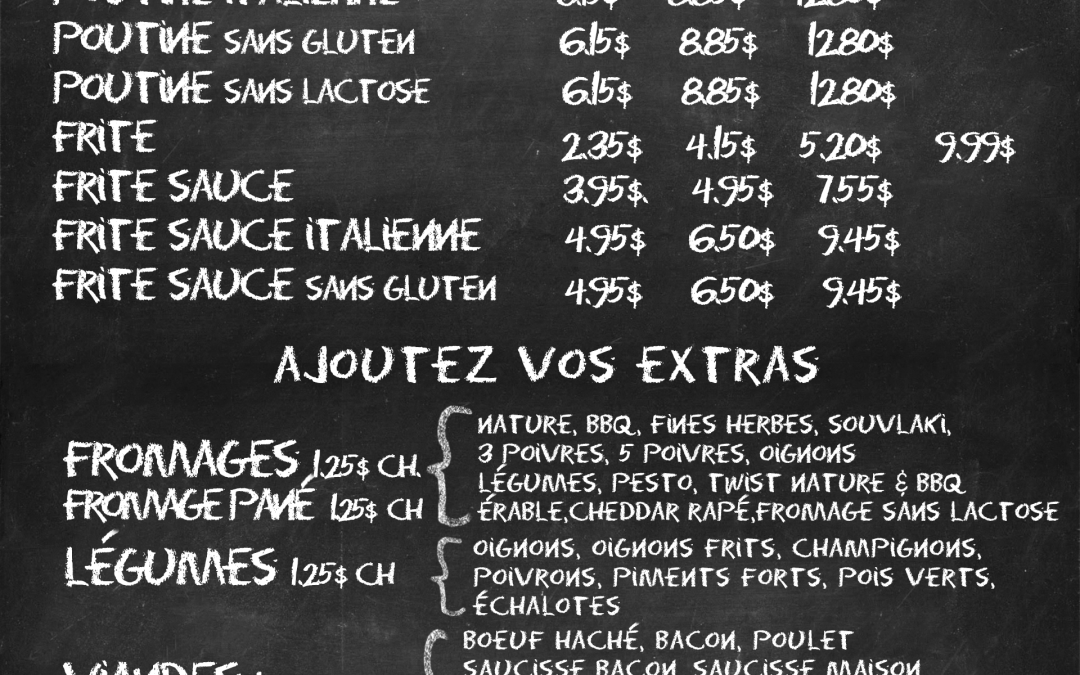 POUTINE ITALIENNE
POUTINE SANS GLUTEN 6.15$ 8.85$ 12.80$
POUTINE SANS LACTOSE 6.15$ 8.85$ 12.80$
FRITE 2.35$ 4.15$ 5.20$ 9.99$
FRITE SAUCE 3.95$ 4.95$ 7.55$
FRITE SAUCE ITALIENNE 4.95$ 6.50$ 9.45$
FRITE SAUCE SANS GLUTEN 4.95$ 6.50$ 9.45$
AJOUTEZ VOS EXTRAS
NATURE, BBQ, FINES HERBES, SOUVLAKI,
FROMAGES 1.25$ CH.
3 POIVRES, 5 POIVRES, OIGNONS
LÉGUMES, PESTO, TWIST NATURE & BBQ
FROMAGE PANÉ 1.25$ CH
ÉRABLE,CHEDDAR RAPÉ,FROMAGE SANS LACTOSE
OIGNONS, OIGNONS FRITS, CHAMPIGNONS,
LÉGUMES 1.25$ CH
POIVRONS, PIMENTS FORTS, POIS VERTS,
ÉCHALOTES
BOEUF HACHÉ, BACON, POULET
SAUCISSE BACON, SAUCISSE MAISON
VIANDES